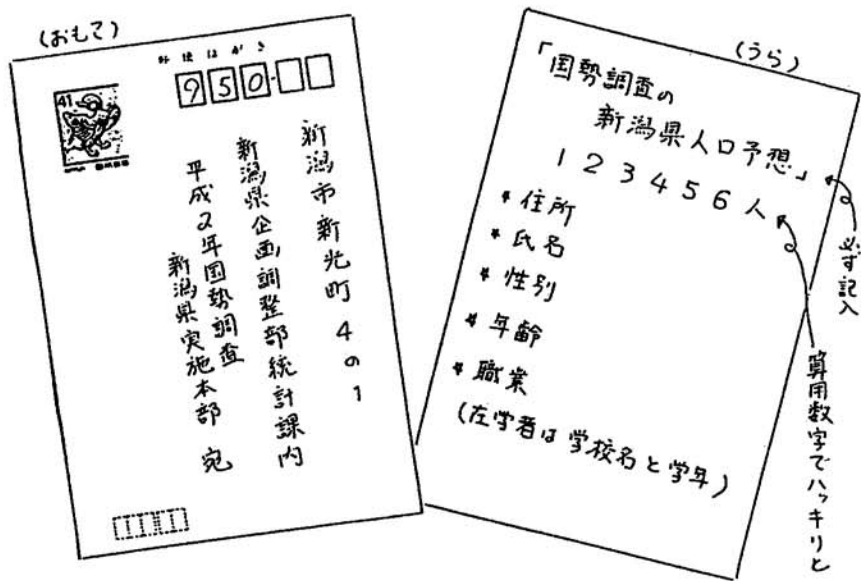 (おもて)
郵便はがき
950
41
新潟市新光町4の1
新潟県企画調整部統計課内
平成2年国勢調査
新潟県実施本部 宛
(うら)
「国勢調査の
新潟県人口予想」
123456人
*住所
*氏名
*性別
*年齢
*職業
(在学者は学校名と学年)
必ず記入
算用数字でハッキリと